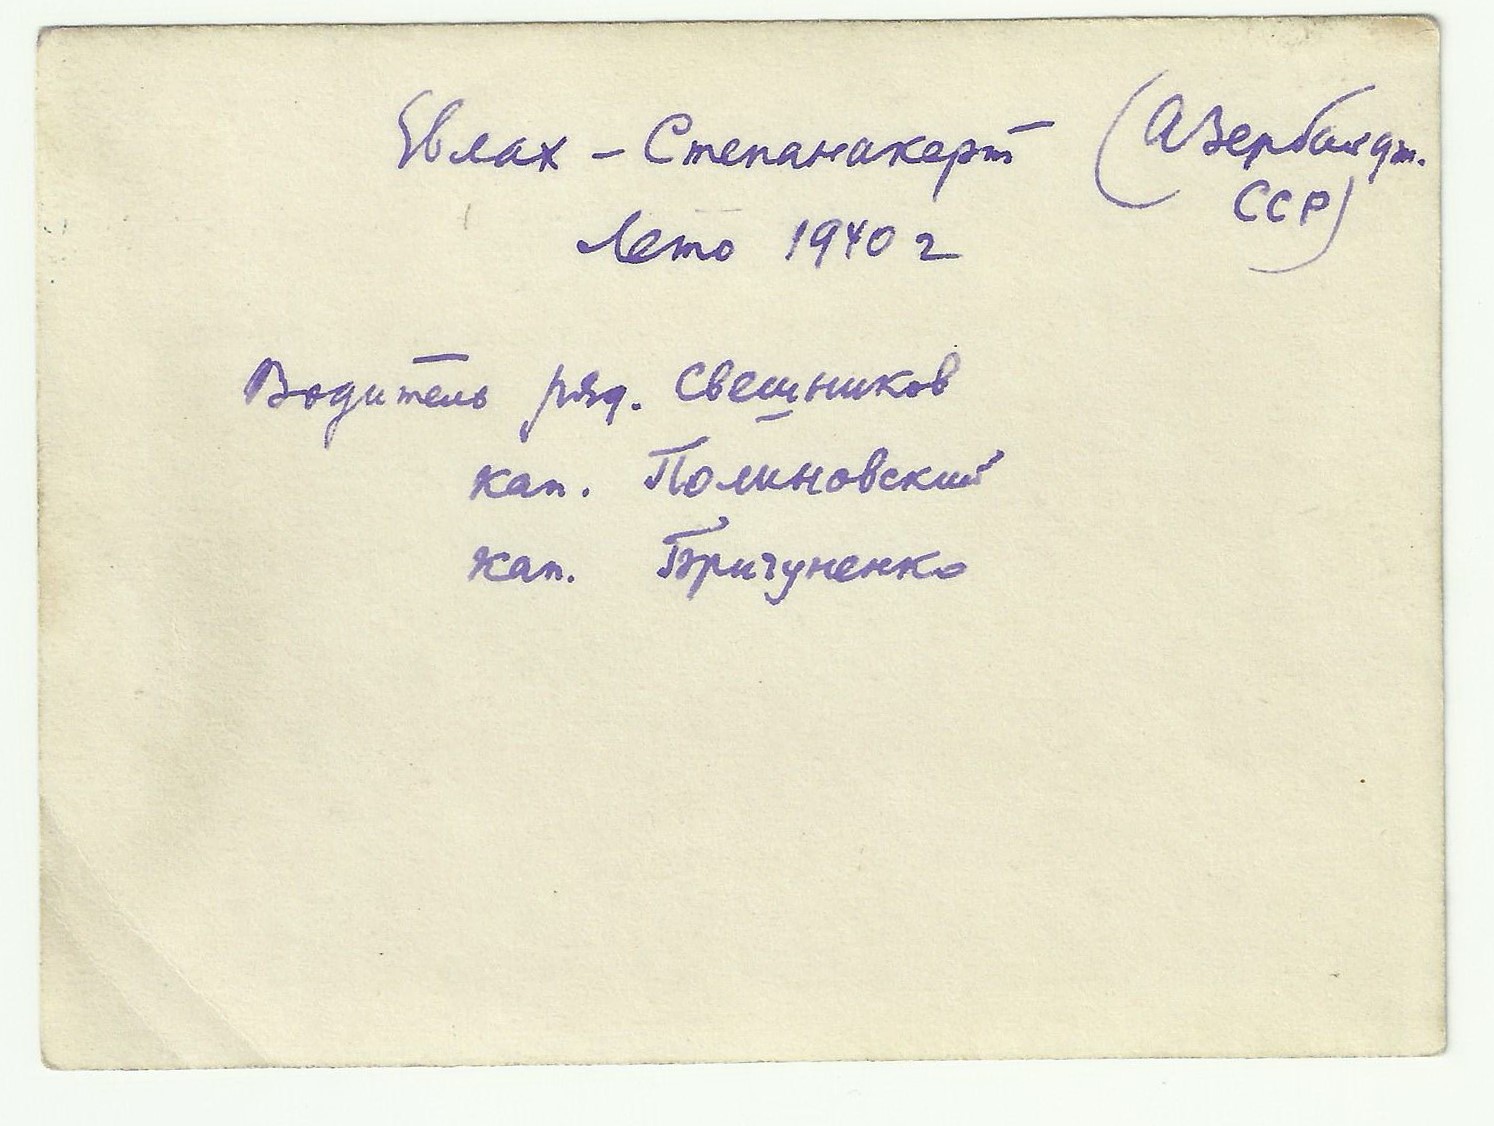 Евлах - Степанакерт (Азербайдж.
ССР)
Лето 1940 г
Водитель ряд. Свешников
кап. Полиновский
кап. Бригуненко